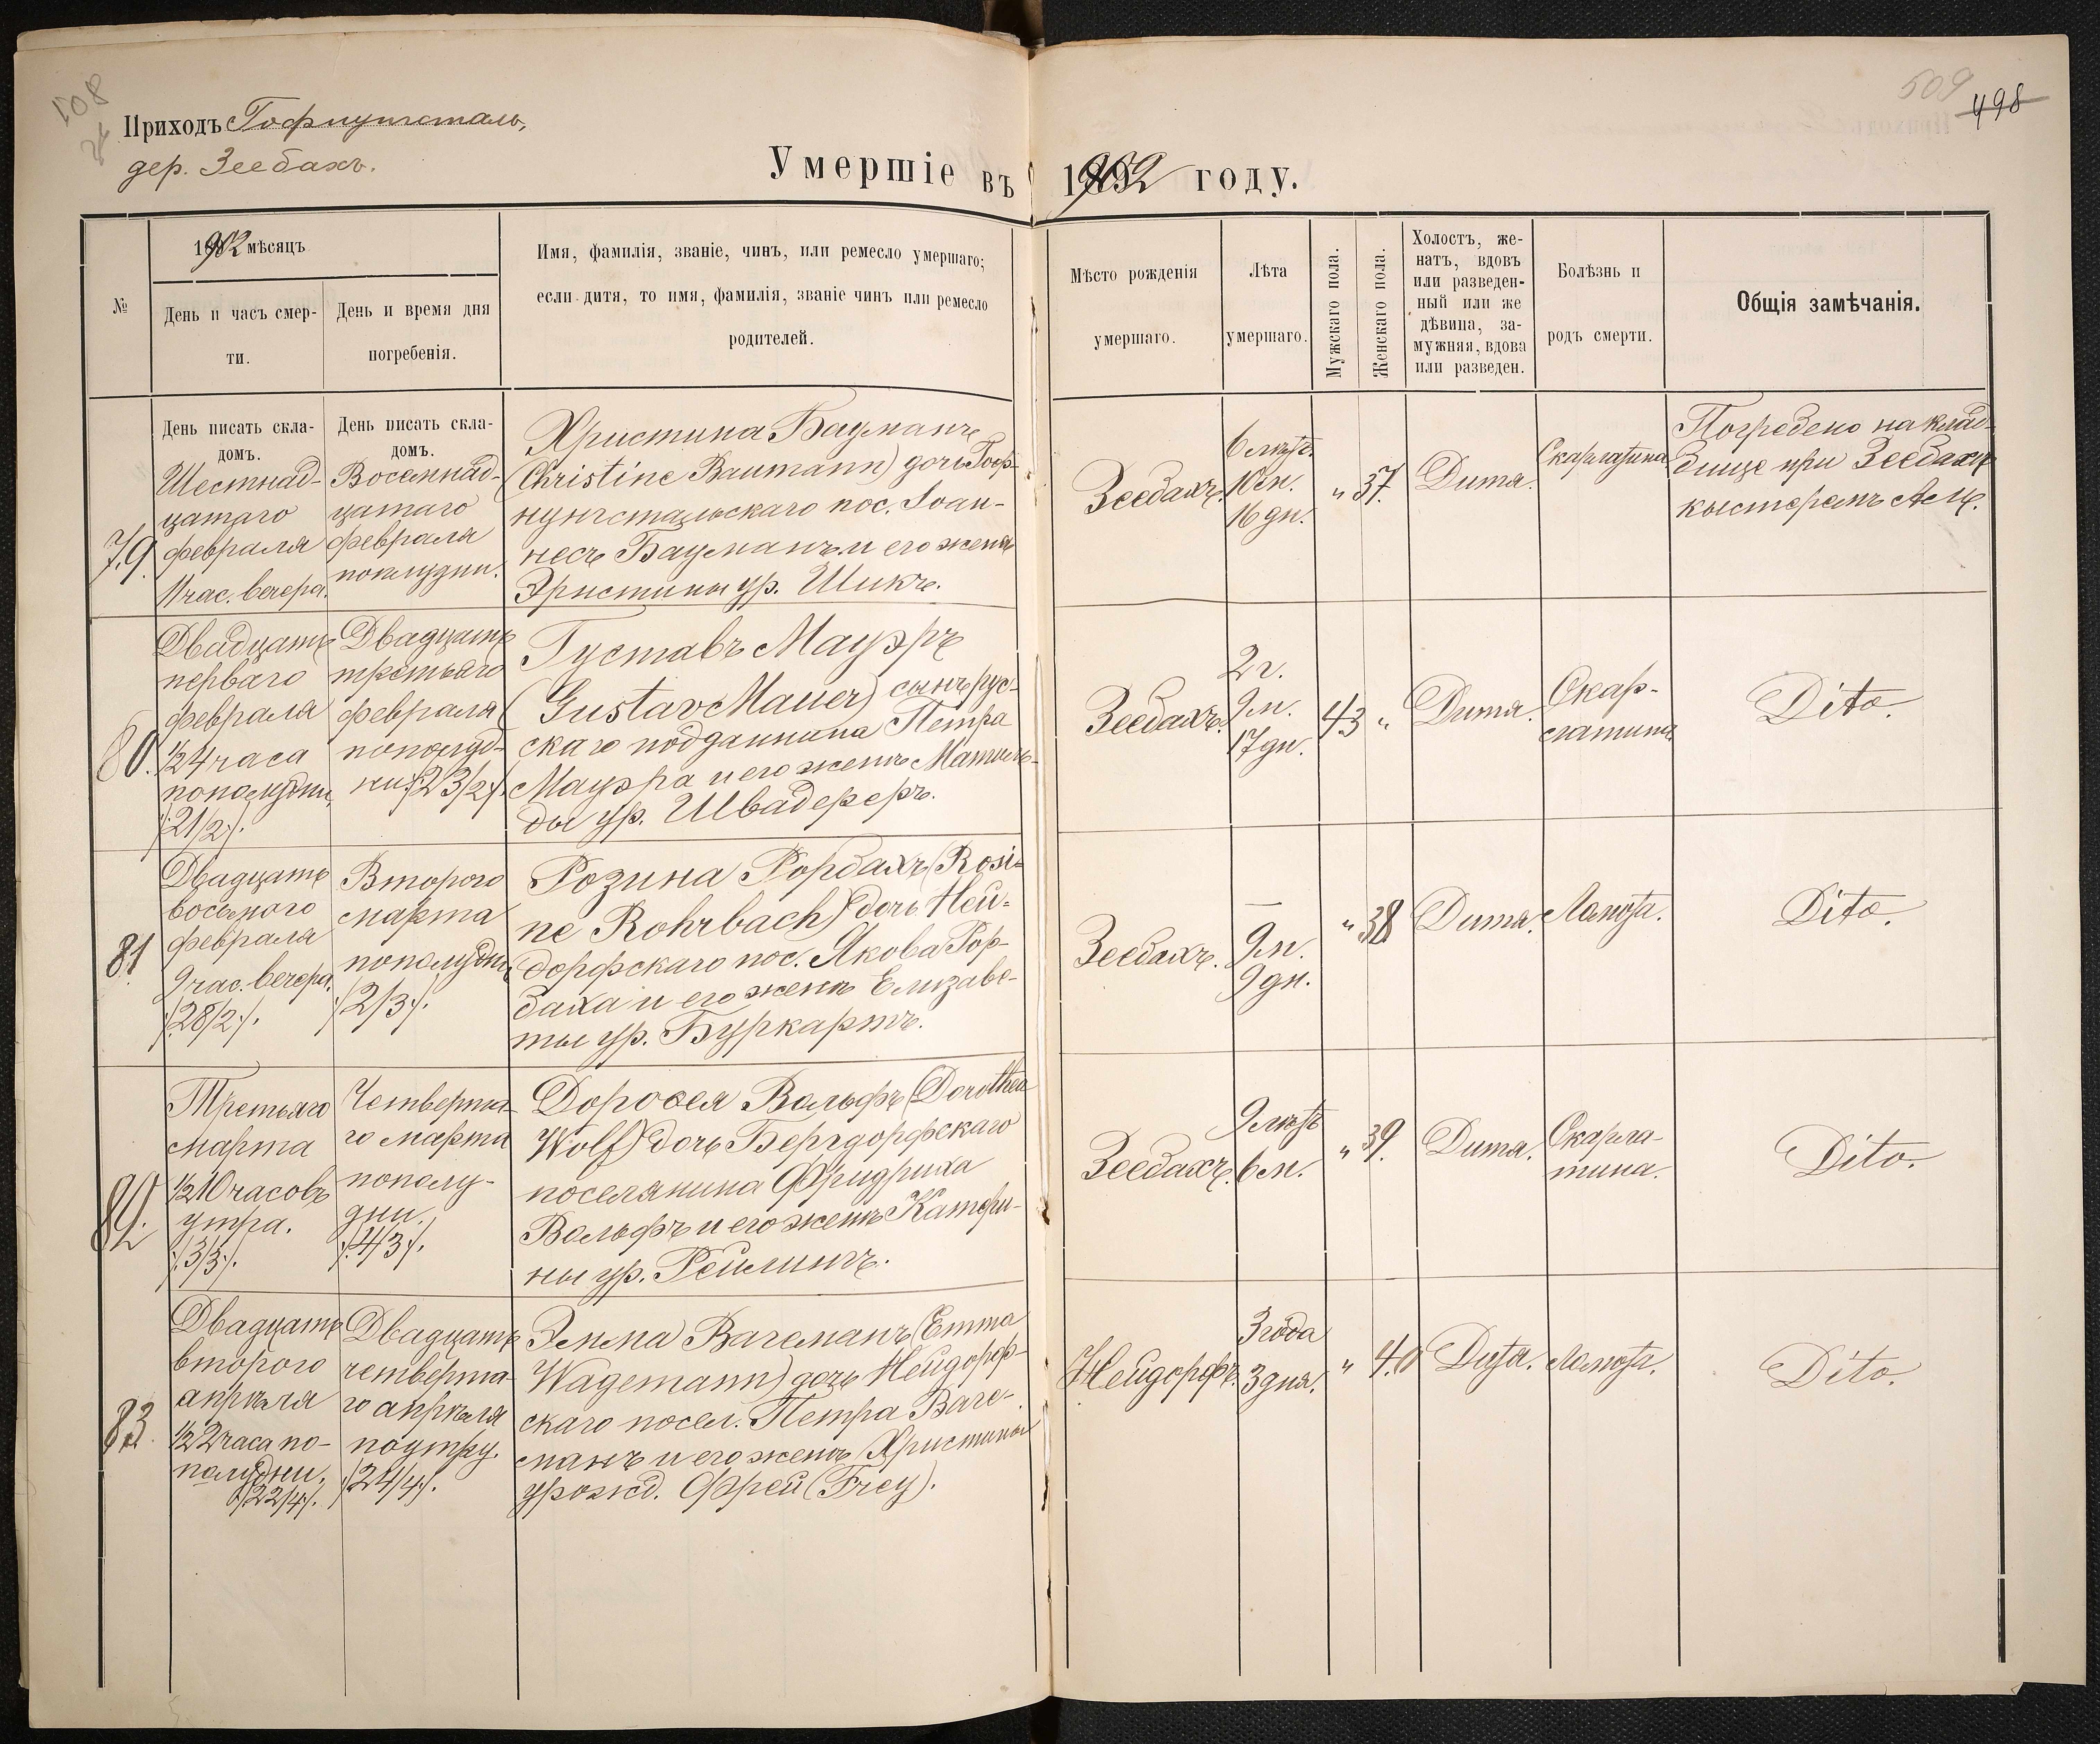 508
509
498
Приходъ Гофнунгсталь,
дер. Зеебахъ.
Умершіе въ 1902 году.
№
1902 мѣсяцъ
День и часъ смер-
ти.
День и время дня
погребенія.
Имя, фамилія, званіе, чинъ, или ремесло умершаго;
если дитя, то имя, фамилія, званіе чинъ или ремесло
родителей.
Мѣсто рожденія
умершаго.
Лѣта
умершаго.
Мужскаго пола.
Женскаго пола.
Холостъ, же-
натъ, вдовъ
или разведен-
ный или же
дѣвица, за-
мужняя, вдова
или разведен.
Болѣзнь и
родъ смерти.
Общія замѣчанія.
День писать скла-
домъ.
День писать скла-
домъ.
79.
Шестнад-
цатаго
февраля
11 час. вечера.
Восемнад-
цатаго
февраля
пополудни.
Христина Бауманъ
(Christine Baumann) дочь Гоф-
нунгстальскаго пос. Іоан-
несъ Бауманъ и его жены
Христины ур. Шикъ.
Зеебахъ.
6 лѣтъ.
10 м.
16 дн.
„ 37.
Дитя.
Скарлатина
Погребено на клад-
бище при Зеебахѣ
кистеромъ А. М.
80.
Двадцать
перваго
февраля
1/2 4 часа
пополудни
/:21/2:/.
Двадцать
третьяго
февраля
пополуд-
ни /:23/2:/.
Густавъ Мауэръ
(Gustav Mauer) сынъ рус-
скаго подданнина Петра
Мауэра и его жены Матиль-
ды ур. Швадереръ.
Зеебахъ.
2 г.
9 м.
17 дн.
43 „
Дитя.
Скар-
латина
Dito.
81.
Двадцать
восьмого
февраля
9 час. вечера.
/:28/2:/.
Второго
марта
пополудни
/:2/3:/.
Розина Рорбахъ (Rosi-
ne Rohrbach) дочь Ней-
дорфскаго пос. Якова Рор-
баха и его жены Елизаве-
ты ур. Буркартъ.
Зеебахъ.
—
9 м.
9 дн.
„ 38
Дитя.
Ломота.
Dito.
82.
Третьяго
марта
1/2 10 часовъ
утра.
/:3/3:/.
Четверта-
го марта
пополу-
дни.
/:4/3:/.
Доровея Вольфъ (Dorothea
Wolf) дочь Бергдорфскаго
поселянина Фридриха
Вольфъ и его жены Катери-
ны ур. Рейлингъ.
Зеебахъ.
9 лѣтъ
6 м.
„ 39.
Дитя.
Скарла-
тина.
Dito.
83.
Двадцать
второго
апрѣля
1/2 2 часа по-
полудни,
/:22/4:/.
Двадцать
четверта-
го апрѣля
по утру.
/:24/4:/.
Эмма Вагеманъ (Emma
Wagemann) дочь Нейдорф-
скаго посел. Петра Ваге-
манъ и его жены Христины
урожд. Фрей (Frey).
Нейдорфъ.
3 года
3 дня.
„ 40
Дитя.
Ломота.
Dito.